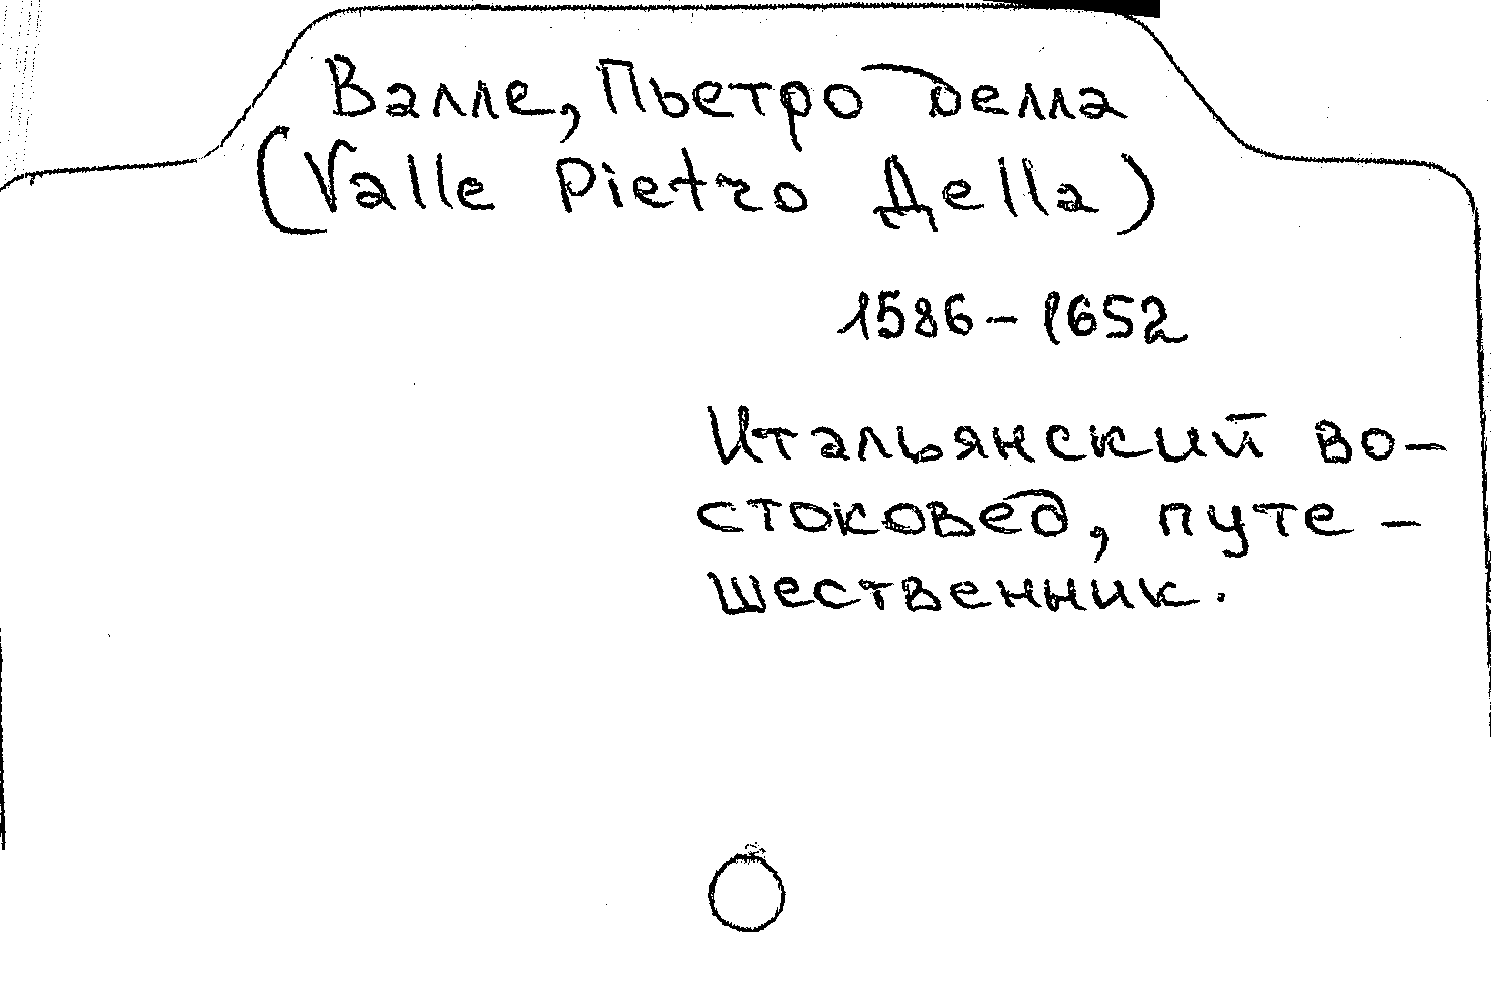 Валле, Пьетро делла
(Valle Pietro Дella)
1586-1652
Итальянский во-
стоковед, путе-
шественник.